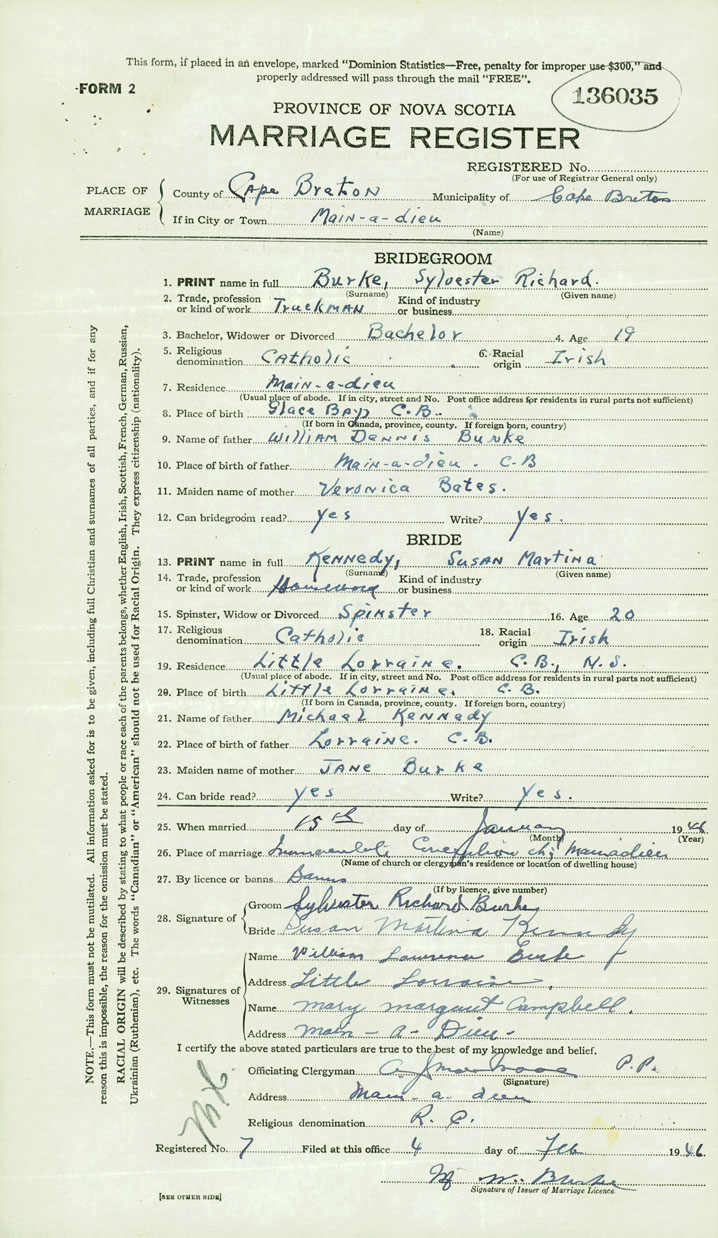 This form, if placed in an envelope, marked "Dominion Statistics—Free, penalty for improper use $300," and
properly addressed will pass through the mail "FREE".
FORM 2
136035
PROVINCE OF NOVA SCOTIA
MARRIAGE REGISTER
REGISTERED No.
(For use of Registrar General only)
PLACE OF MARRIAGE
County of Cape Breton Municipality of Cape Breton
If in City or Town Main-a-dieu
(Name)
BRIDEGROOM
1. PRINT name in full Burke, Sylvester Richard.
(Surname) (Given name)
2. Trade, profession or kind of work Truckman Kind of industry or business
3. Bachelor, Widower or Divorced Bachelor 4. Age 19
5. Religious denomination Catholic 6. Racial origin Irish
7. Residence Main-a-dieu
(Usual place of abode. If in city, street and No. Post office address for residents in rural parts not sufficient)
8. Place of birth Glace Bay C.B.
(If born in Canada, province, county. If foreign born, country)
9. Name of father William Dennis Burke
10. Place of birth of father Main-a-dieu. C.B
11. Maiden name of mother Veronica Bates.
12. Can bridegroom read? yes Write? yes.
BRIDE
13. PRINT name in full Kennedy, Susan Martina
(Surname) (Given name)
14. Trade, profession or kind of work Kind of industry or business
15. Spinster, Widow or Divorced Spinster 16. Age 20
17. Religious denomination Catholic 18. Racial origin Irish
19. Residence Little Lorraine. C.B., N.S.
(Usual place of abode. If in city, street and No. Post office address for residents in rural parts not sufficient)
20. Place of birth Little Lorraine. C.B.
(If born in Canada, province, county. If foreign born, country)
21. Name of father Michael Kennedy
22. Place of birth of father Lorraine. C.B.
23. Maiden name of mother Jane Burke
24. Can bride read? yes Write? yes.
25. When married 15th day of January 1946
(Month) (Year)
26. Place of marriage Immaculate Conception ch; Mainadieu
(Name of church or clergyman's residence or location of dwelling house)
27. By licence or banns Banns
(If by licence, give number)
28. Signature of
Groom Sylvester Richard Burke
Bride Susan Martina Kennedy
29. Signatures of Witnesses
Name William Lawrence Burke
Address Little Lorraine,
Name Mary Margaret Campbell.
Address Main-a-Dieu-
I certify the above stated particulars are true to the best of my knowledge and belief.
Officiating Clergyman P.P.
(Signature)
Address Main-a-dieu
Religious denomination R.C.
Registered No. 7 Filed at this office 4 day of Feb 1946
M. W. Burke
Signature of Issuer of Marriage Licence.
[SEE OTHER SIDE]
NOTE.—This form must not be mutilated. All information asked for is to be given, including full Christian and surnames of all parties, and if for any
reason this is impossible, the reason for the omission must be stated.
RACIAL ORIGIN will be described by stating to what people or race each of the parents belongs, whether English, Irish, Scottish, French, German, Russian,
Ukrainian (Ruthenian), etc. The words "Canadian" or "American" should not be used for Racial Origin. They express citizenship (nationality).